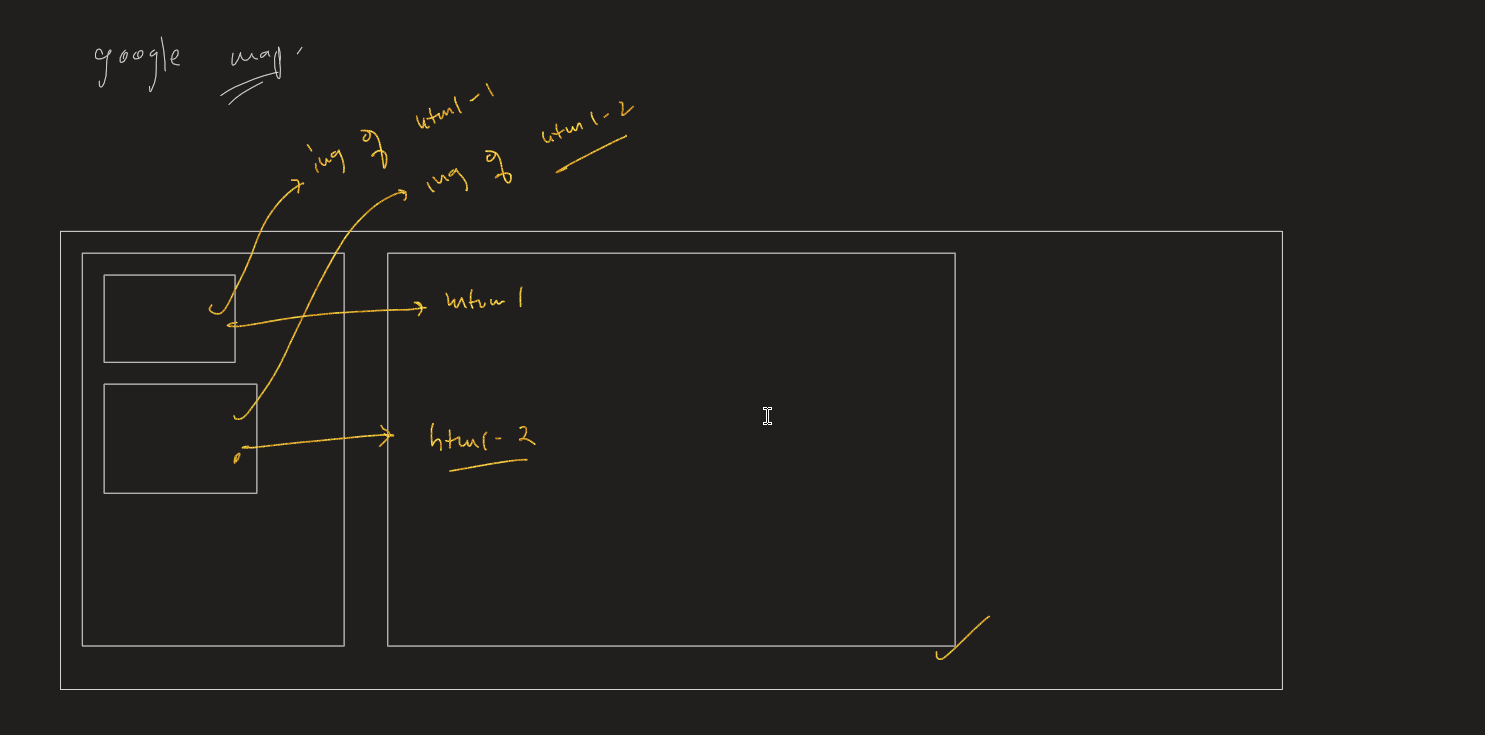 google map.
img of html-1
img of html-2
html
html-2